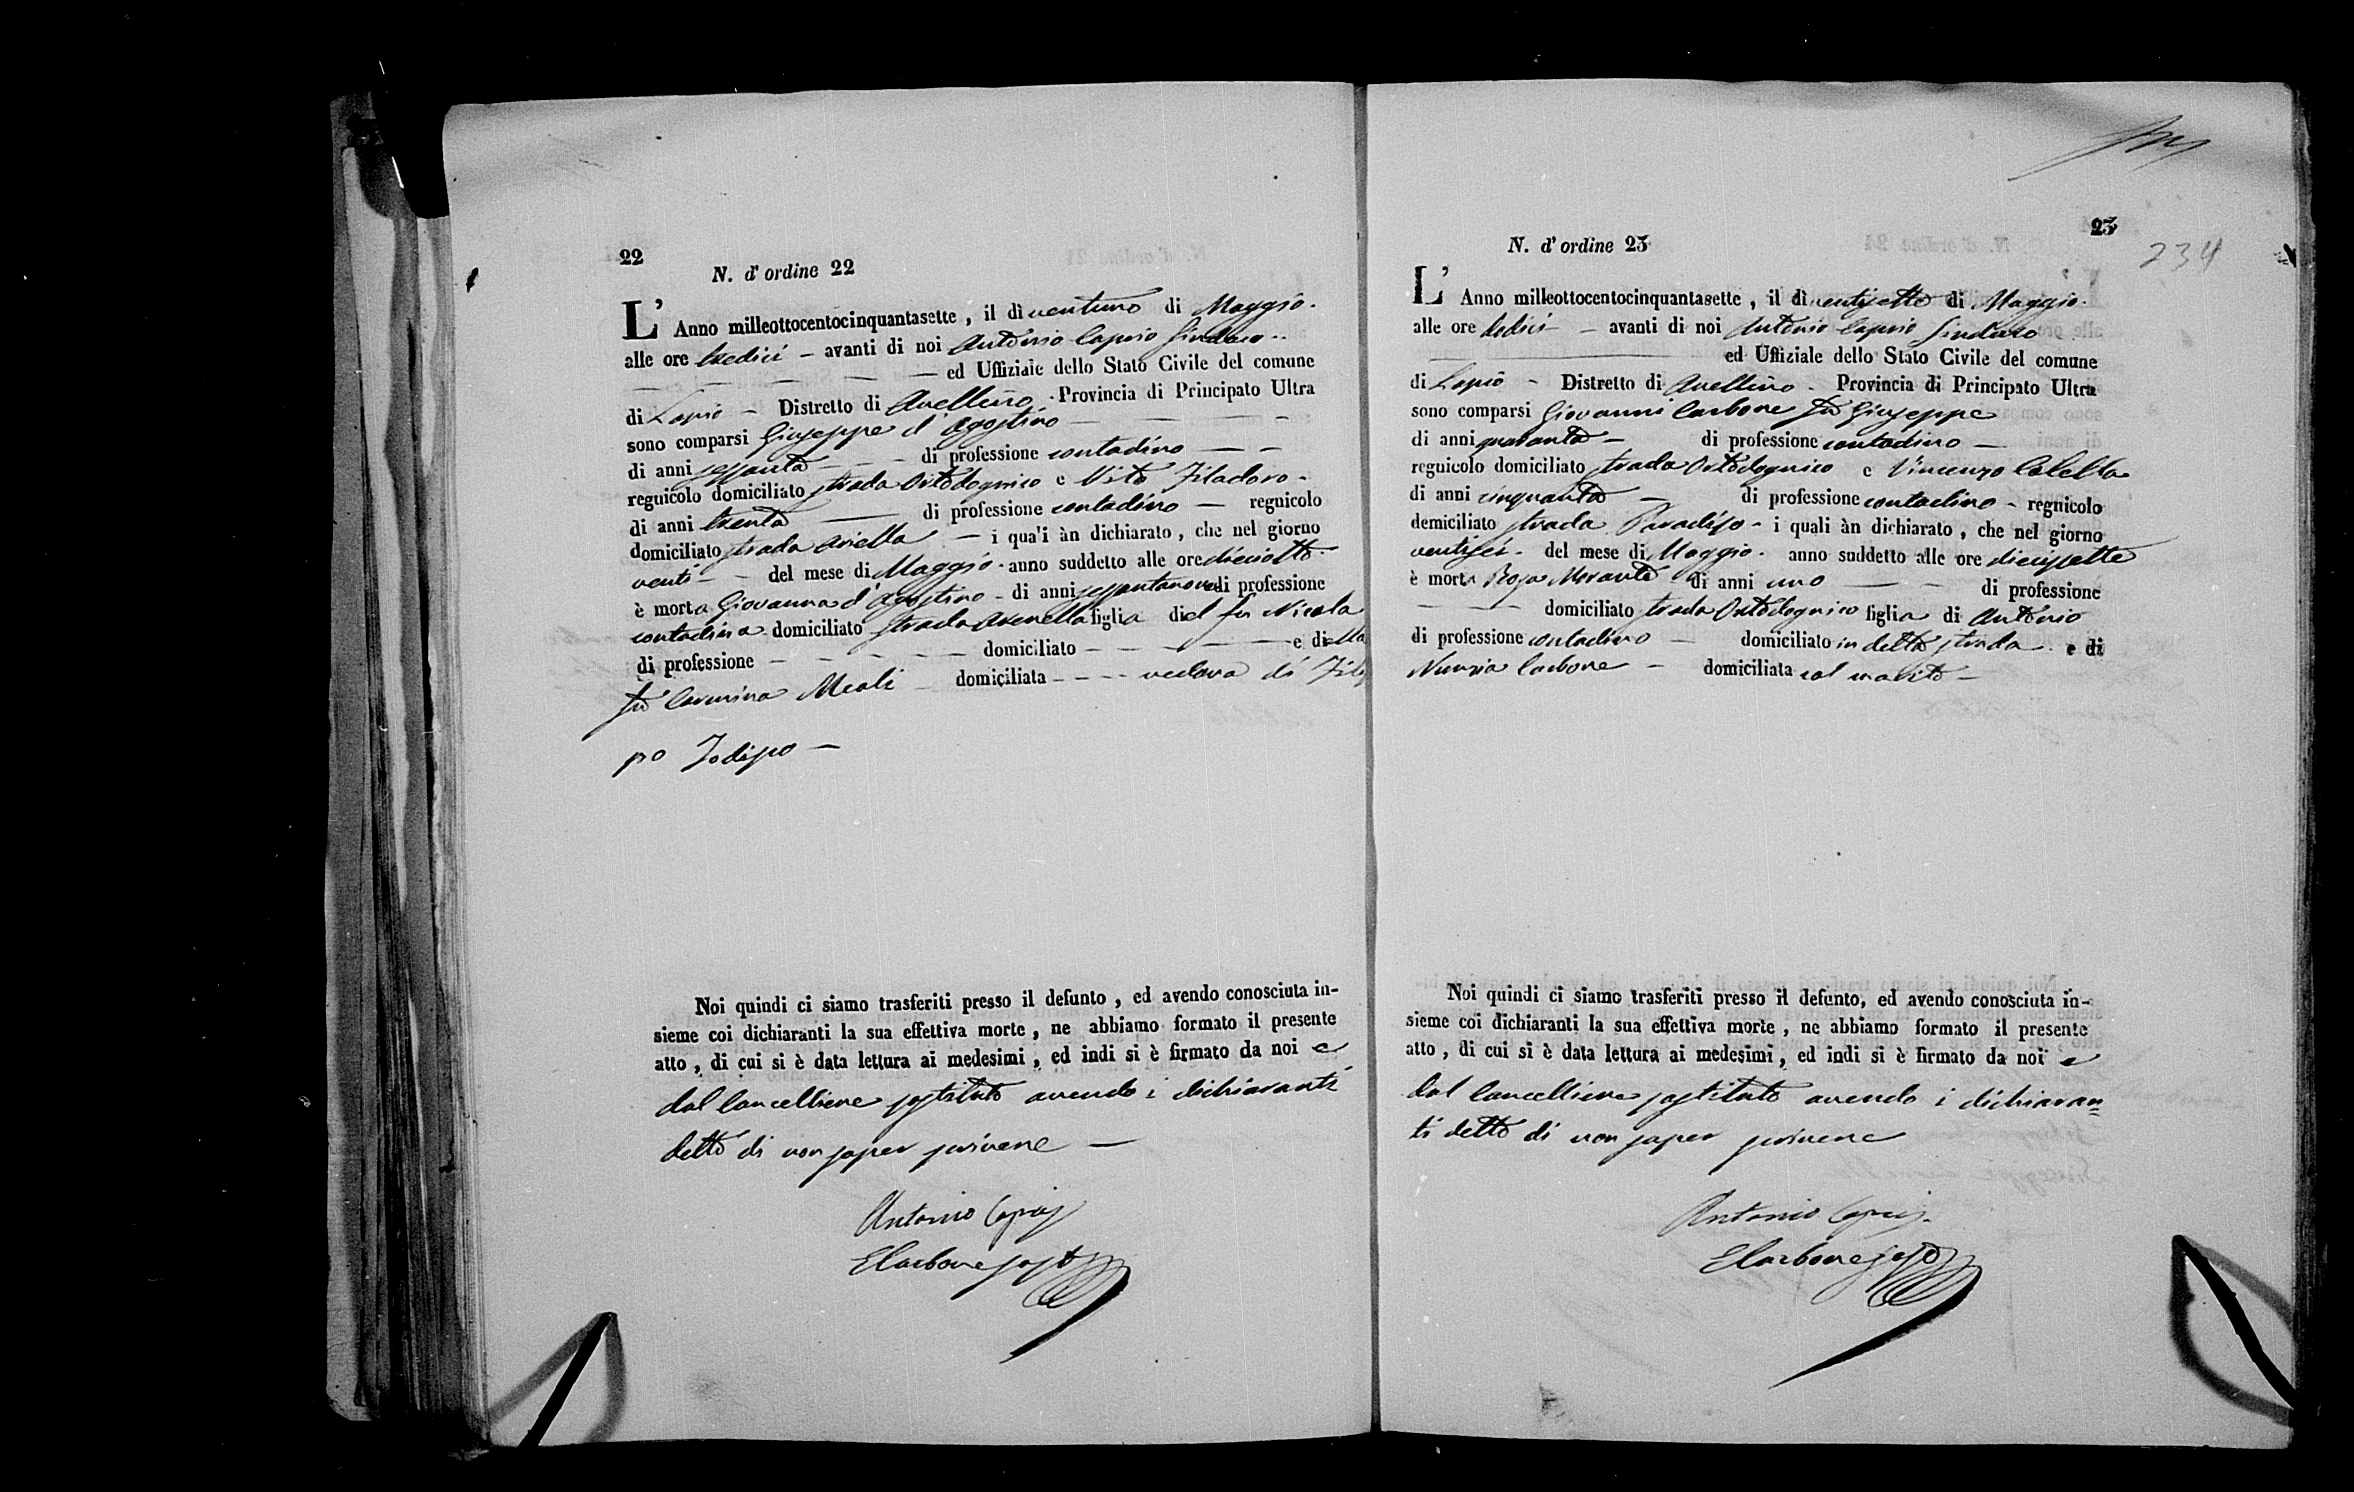 22
N. d' ordine 22
L' Anno milleottocentocinquantasette , il dì ventuno di Maggio.
alle ore tredici – avanti di noi Antonio Caprio Sindaco..
ed Uffiziale dello Stato Civile del comune
di Lapio – Distretto di Avellino . Provincia di Principato Ultra
sono comparsi Giuseppe d'Agostino –
di anni sessanta – di professione contadino –
regnicolo domiciliato strada Ortodognico e Vito Filadoro.
di anni trenta – di professione contadino – regnicolo
domiciliato strada – i quali àn dichiarato , che nel giorno
venti – del mese di Maggio . anno suddetto alle ore dieciotto
è morta Giovanna d'Agostino – di anni sessantanove di professione
contadina domiciliato strada figlia del fu Nicola
di professione – domiciliato – e della
fu Carmina Meoli domiciliata – vedova di Filip
po Jodipo –
Noi quindi ci siamo trasferiti presso il defunto , ed avendo conosciuta in-
sieme coi dichiaranti la sua effettiva morte , ne abbiamo formato il presente
atto , di cui si è data lettura ai medesimi , ed indi si è firmato da noi e
dal Cancelliere sostituto avendo i dichiaranti
detto di non saper scrivere –
Antonio Caprio
E Carbone sost
23
234
N. d' ordine 23
L' Anno milleottocentocinquantasette , il dì ventisette di Maggio.
alle ore dodici – avanti di noi Antonio Caprio Sindaco
ed Uffiziale dello Stato Civile del comune
di Lapio – Distretto di Avellino . Provincia di Principato Ultra
sono comparsi Giovanni Carbone fu Giuseppe
di anni quaranta – di professione contadino –
regnicolo domiciliato strada Ortodognico e Vincenzo Colella
di anni cinquanta – di professione contadino – regnicolo
domiciliato strada Paradiso – i quali àn dichiarato , che nel giorno
ventisei . del mese di Maggio . anno suddetto alle ore diecissette
è morta Rosa Morante di anni uno – di professione
– domiciliato strada Ortodognico figlia di Antonio
di professione contadino – domiciliato in detta strada e di
Nunzia Carbone – domiciliata col marito –
Noi quindi ci siamo trasferiti presso il defunto, ed avendo conosciuta in-
sieme coi dichiaranti la sua effettiva morte , ne abbiamo formato il presente
atto , di cui si è data lettura ai medesimi , ed indi si è firmato da noi e
dal Cancelliere sostituto avendo i dichiaran=
ti detto di non saper scrivere
Antonio Caprio
E Carbone sost